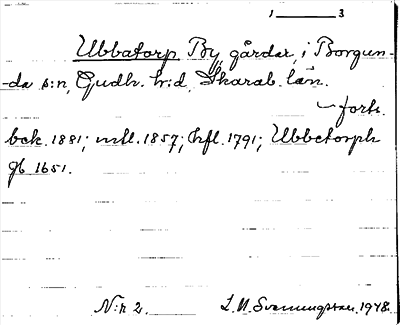 1 3
Ubbatorp By, gårdar, i Borgun-
-da s:n, Gudh. h:d, Skarab. län.
forts.
bek. 1881; mtl. 1857; hfl. 1791; Ubbetorph
gb 1651.
N:r 2. L.M. Svenungsson 1948.